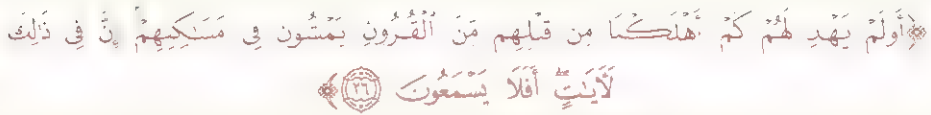 ﴿أَوَلَمْ يَهْدِ لَهُمْ كَمْ أَهْلَكْنَا مِن قَبْلِهِم مِّنَ ٱلْقُرُونِ يَمْشُونَ فِى مَسَـٰكِنِهِمْ ۚ إِنَّ فِى ذَٰلِكَ
لَـَٔايَـٰتٍ ۖ أَفَلَا يَسْمَعُونَ ٢٦﴾